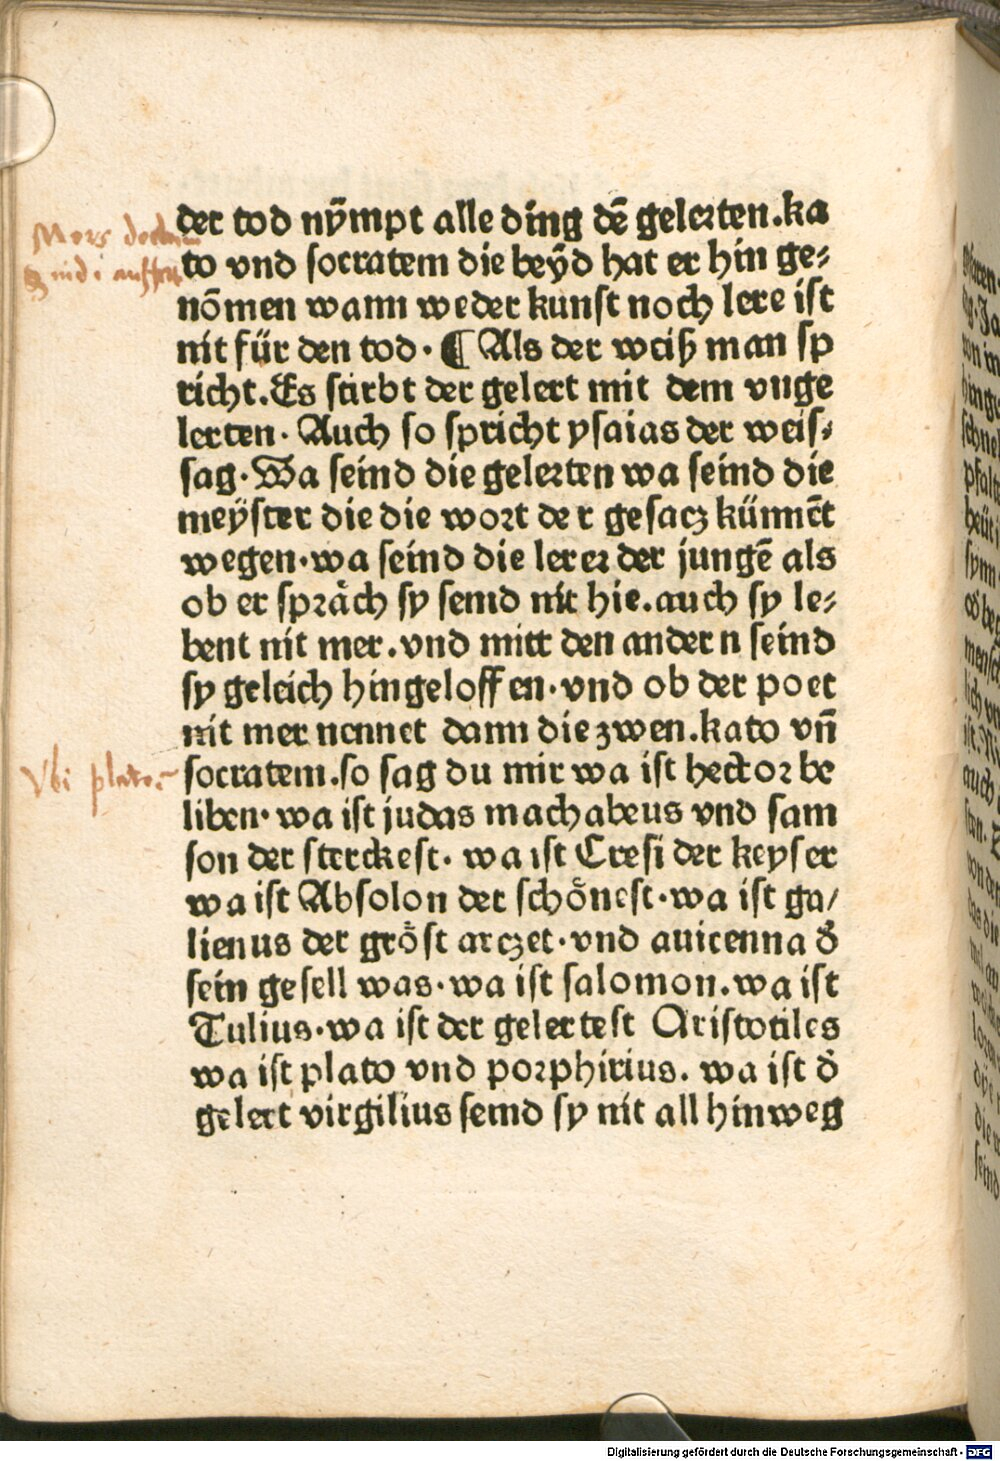 der tod nÿmpt alle ding dē gelerten.ka
to vnd socratem die beÿd hat er hin ge⸗
nōmen wann weder kunst noch lere ist
nit für den tod. ¶ Als der weiß man sp
richt. Es stirbt der gelert mit dem vnge
lerten. Auch so spricht ysaias der weis⸗
sag. Wa seind die gelerten wa seind die
meÿster die die wort der gesacz künnēt
wegen. wa seind die lerer der jungē als
ob er spräch sy seind nit hie. auch sy le⸗
bent nit mer. vnd mitt den andern seind
sy geleich hingeloffen. vnd ob der poet
nit mer nennet dann die zwen. kato vn̄
socratem. so sag du mir wa ist hector be
liben. wa ist judas machabeus vnd sam
son der sterckest. wa ist Cresi der keyser
wa ist Absolon der schönest. wa ist ga/
lienus der gröst arczet. vnd auicenna d̄
sein gesell was. wa ist salomon. wa ist
Tulius. wa ist der gelertest Aristotiles
wa ist plato vnd porphirius. wa ist d̄
gelert virgilius seind sy nit all hinweg
Mors
Vbi plato
Digitalisierung gefördert durch die Deutsche Forschungsgemeinschaft - DFG